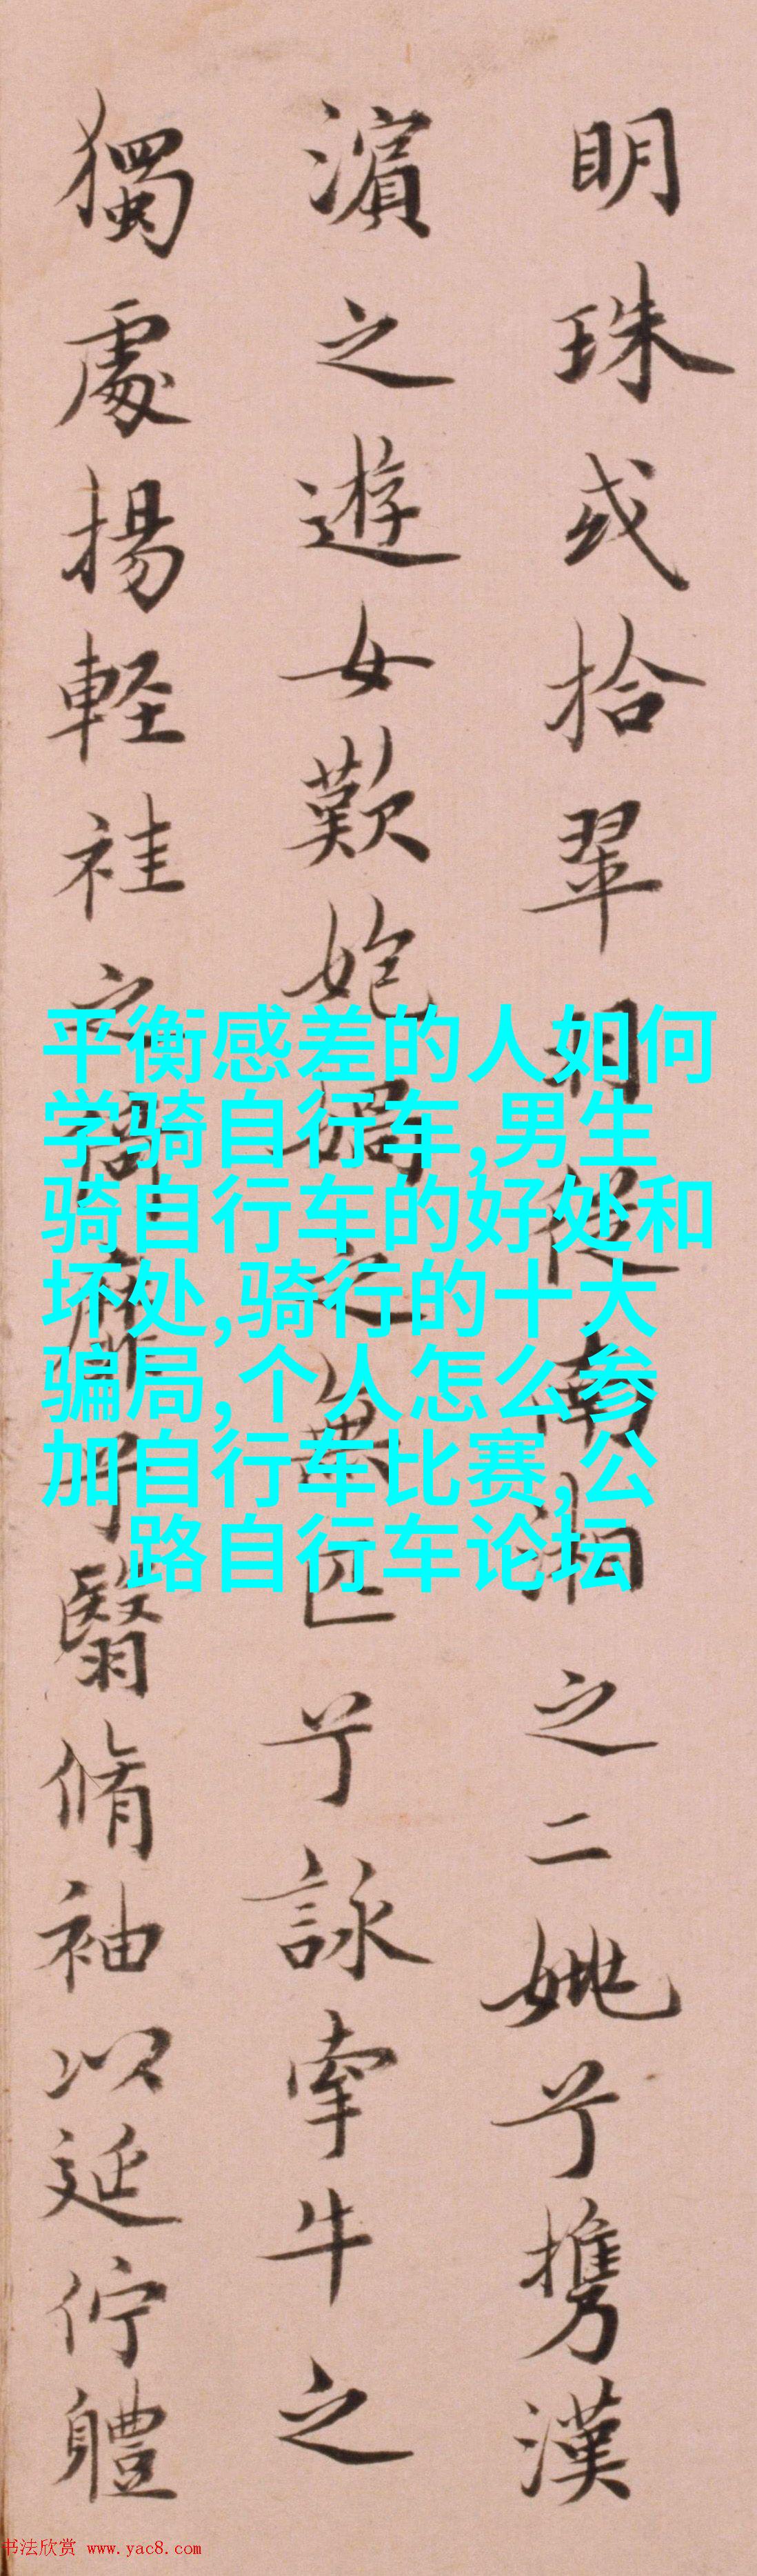 明珠或拾翠羽從南湘之二兮携漢
濵之遊女歎媧之無匹兮詠牽牛之
獨處揚軽袿之猗靡兮翳脩袖以延佇體
平衡感差的人如何
学骑自行车,男生
骑自行车的好处和
坏处,骑行的十大
骗局,个人怎么参
加自行车比赛,公
路自行车论坛
书法欣赏 www.yac8.com